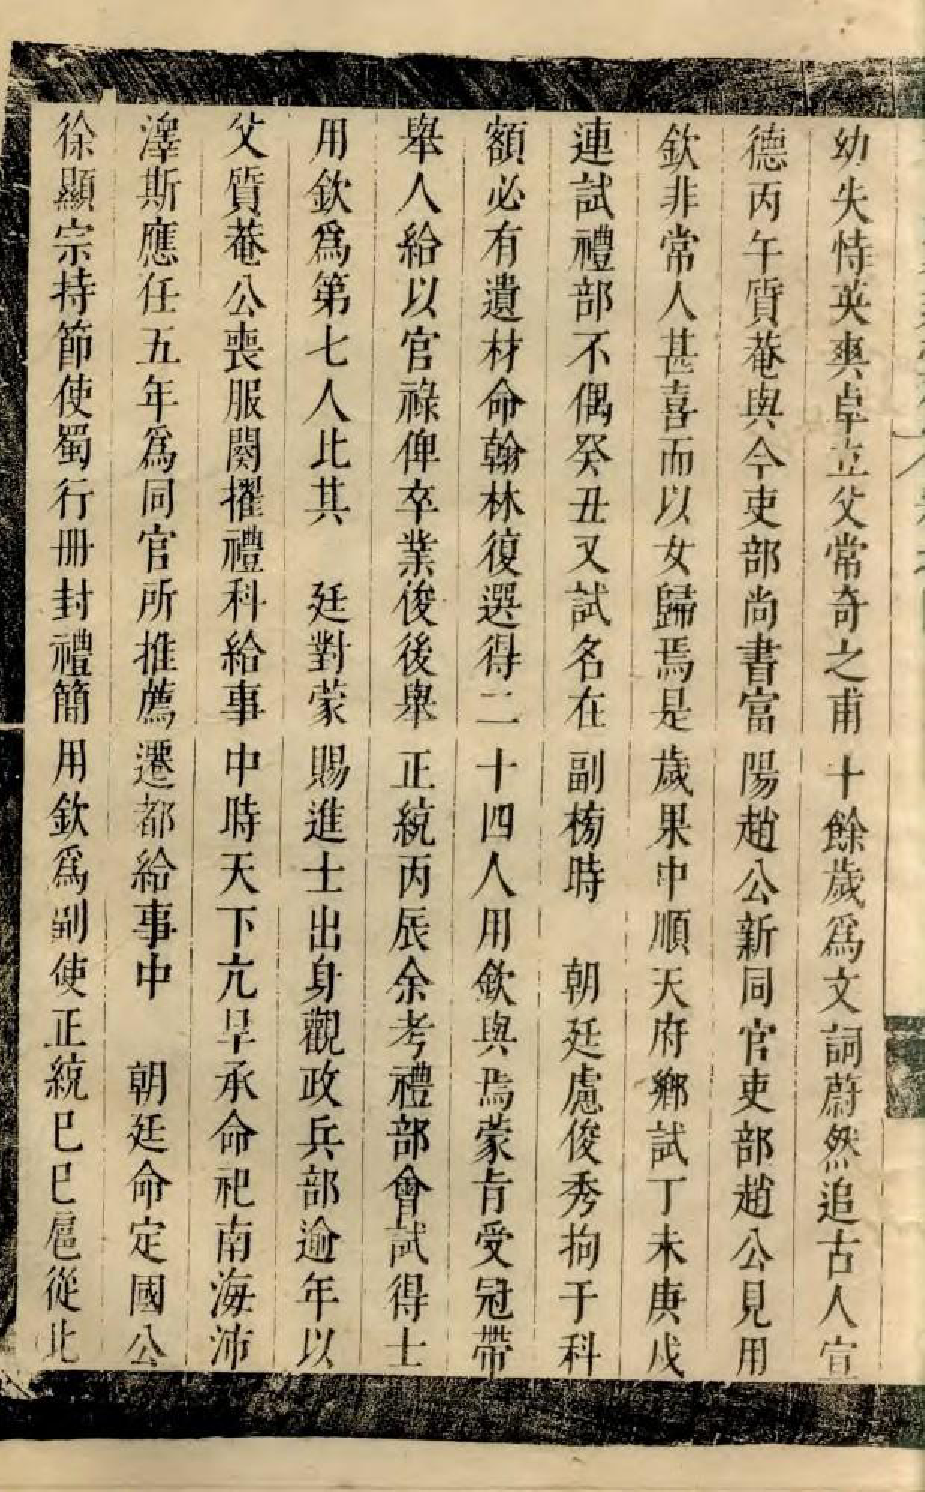 幼失恃英爽卓立父常奇之甫十餘歲爲文詞蔚然追古人宣
德丙午質菴與今吏部尚書富陽趙公新同官吏部趙公見用
欽非常人甚喜而以女歸焉是歲果中順天府鄉試丁未庚戌
連試禮部不偶癸丑又試名在副榜時　朝廷慮俊秀拘于科
額必有遺材命翰林復選得二十四人用欽與焉蒙旨受冠帶
舉人給以官祿俾卒業俊後舉正統丙辰余考禮部會試得士
用欽爲第七人比其　廷對蒙賜進士出身觀政兵部逾年以
父質菴公喪服闋擢禮科給事中時天下亢旱承命祀南海沛
澤斯應任五年爲同官所推薦遷都給事中　朝廷命定國公
徐顯宗持節使蜀行冊封禮簡用欽爲副使正統己巳扈從北